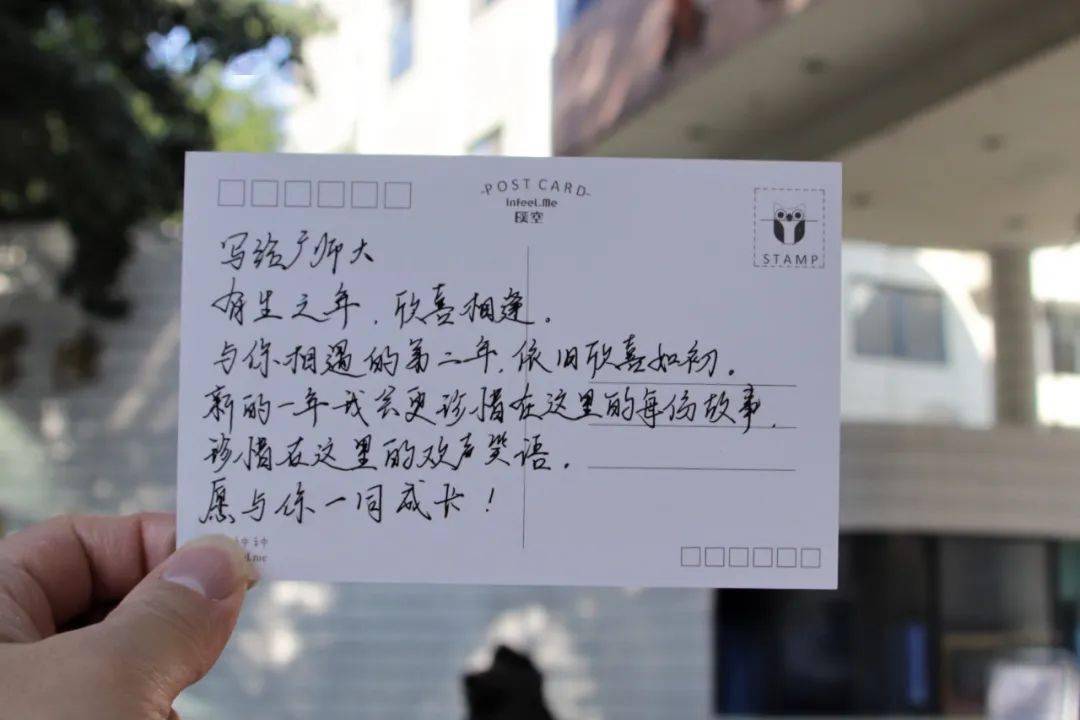 POST CARD
Infeel.Me
STAMP
写给广师大
有生之年，欣喜相逢。
与你相遇的第二年，依旧欣喜如初。
新的一年我会更珍惜在这里的每份故事，
珍惜在这里的欢声笑语。
愿与你一同成长！